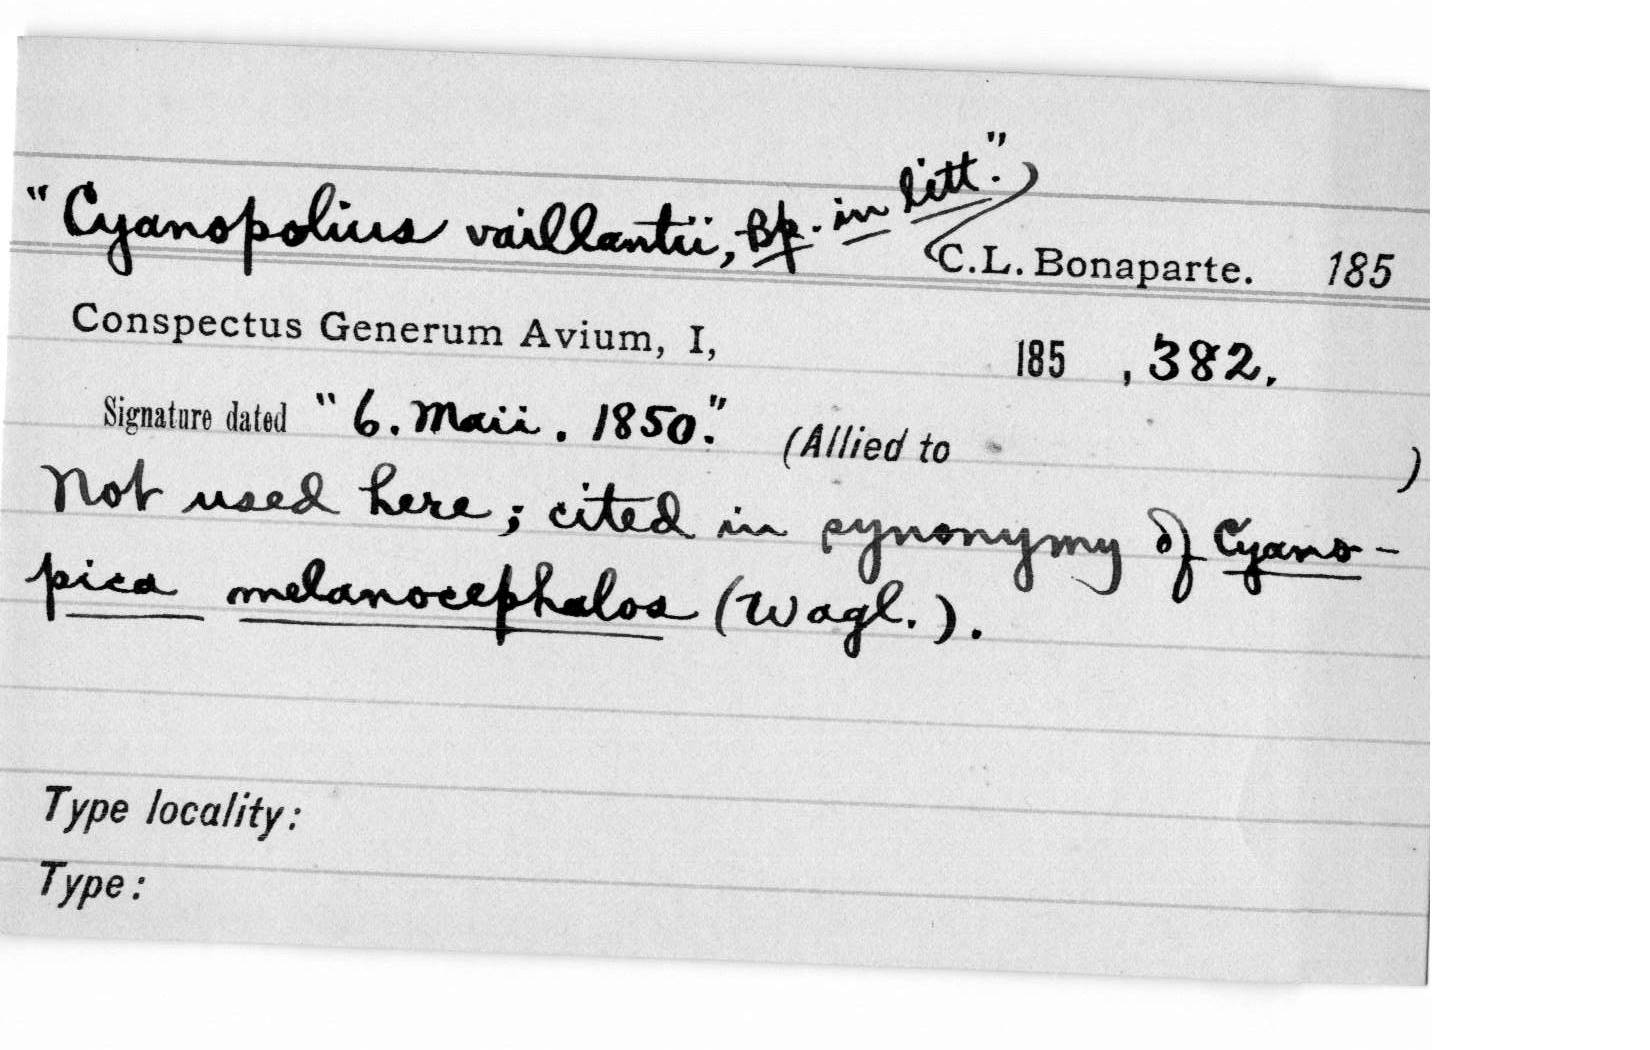 "Cyanopolius vaillantii, Bp. in litt."
C.L. Bonaparte. 185
Conspectus Generum Avium, I, 185 , 382.
Signature dated "6. Maii. 1850." (Allied to )
Not used here; cited in synonymy of Cyano-
pica melanocephalos (Wagl.).
Type locality:
Type: